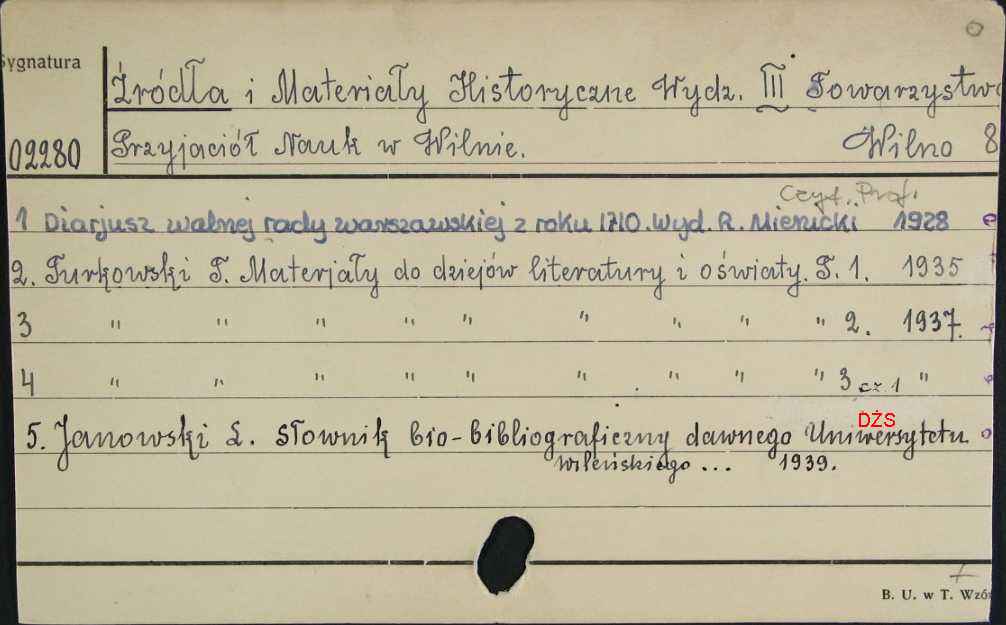 Sygnatura
Źródła i Materiały Historyczne Wydz. III Towarzystwa
02280 Przyjaciół Nauk w Wilnie. Wilno 8
Czyt. Prof.
1 Diarjusz walnej rady warszawskiej z roku 1710. Wyd. R. Mienicki 1928
2. Turkowski T. Materjały do dziejów literatury i oświaty. T. 1. 1935
3 " " " " " " " " " 2. 1937.
4 " " " " " " " " " 3 cz 1 "
DŻS
5. Janowski L. Słownik bio-bibliograficzny dawnego Uniwersytetu
Wileńskiego ... 1939.
B. U. w T. Wzór